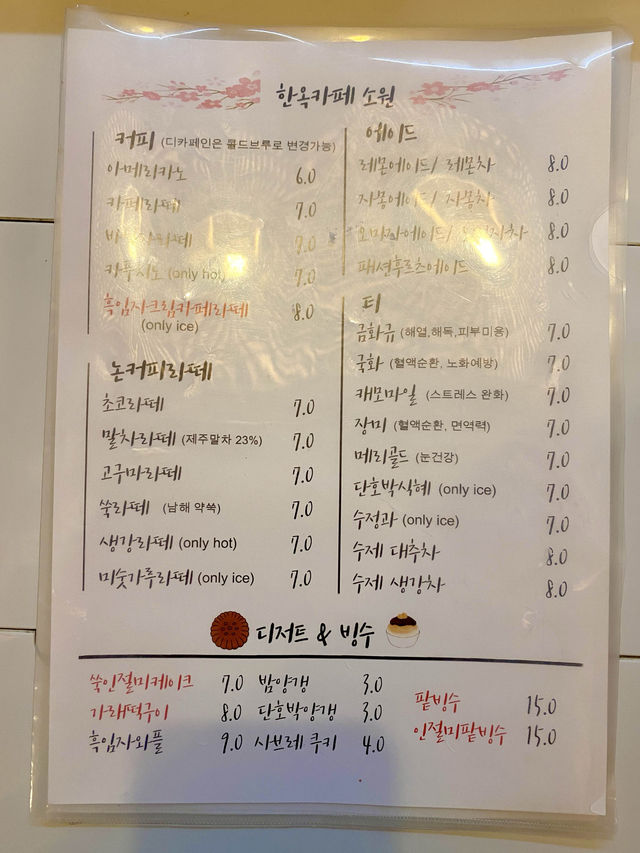 한옥카페 소원
커피 (디카페인은 콜드브루로 변경가능)
아메리카노 6.0
카페라떼 7.0
7.0
카푸치노 (only hot) 7.0
흑임자크림카페라떼 8.0
(only ice)
논커피라떼
초코라떼 7.0
말차라떼 (제주말차 23%) 7.0
고구마라떼 7.0
쑥라떼 (남해 약쑥) 7.0
생강라떼 (only hot) 7.0
미숫가루라떼 (only ice) 7.0
에이드
레몬에이드/ 레몬차 8.0
자몽에이드/ 자몽차 8.0
오미자에이드/ 8.0
패션후르츠에이드 8.0
티
금화규 (해열,해독,피부미용) 7.0
국화 (혈액순환, 노화예방) 7.0
캐모마일 (스트레스 완화) 7.0
장미 (혈액순환, 면역력) 7.0
메리골드 (눈건강) 7.0
단호박식혜 (only ice) 7.0
수정과 (only ice) 7.0
수제 대추차 8.0
수제 생강차 8.0
디저트 & 빙수
쑥인절미케이크 7.0
가래떡구이 8.0
흑임자와플 9.0
밤양갱 3.0
단호박양갱 3.0
사브레 쿠키 4.0
팥빙수 15.0
인절미팥빙수 15.0